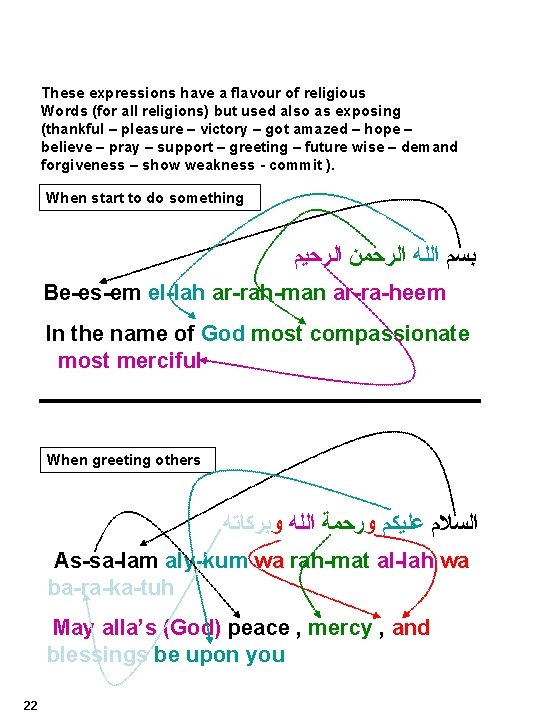 These expressions have a flavour of religious
Words (for all religions) but used also as exposing
(thankful – pleasure – victory – got amazed – hope –
believe – pray – support – greeting – future wise – demand
forgiveness – show weakness - commit ).
When start to do something
بسم الله الرحمن الرحيم
Be-es-em el-lah ar-rah-man ar-ra-heem
In the name of God most compassionate
most merciful
When greeting others
السلام عليكم ورحمة الله وبركاته
As-sa-lam aly-kum wa rah-mat al-lah wa
ba-ra-ka-tuh
May alla's (God) peace , mercy , and
blessings be upon you
22